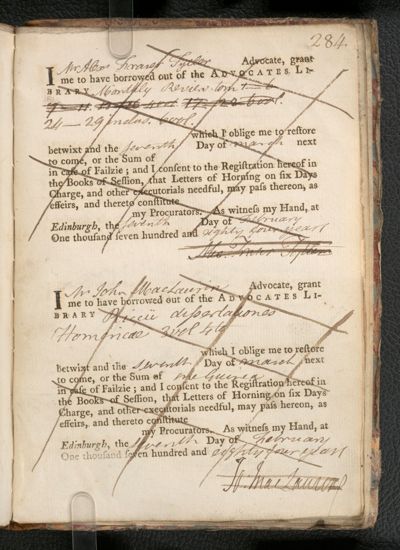 284.
I Mr Alexr Fraser Tytler Advocate, grant
me to have borrowed out of the ADVOCATES LI-
BRARY Monthly Review tom 1-6
24-29 inclus.
which I oblige me to restore
betwixt and the seventh Day of march next
to come, or the Sum of
in case of Failzie; and I consent to the Registration hereof in
the Books of Session, that Letters of Horning on six Days
Charge, and other executorials needful, may pass thereon, as
effeirs, and thereto constitute
my Procurators. As witness my Hand, at
Edinburgh, the seventh Day of February
One thousand seven hundred and eighty four years
I Mr John MacLaurin Advocate, grant
me to have borrowed out of the ADVOCATES LI-
BRARY Riccii dissertationes
Homericae
which I oblige me to restore
betwixt and the seventh Day of march next
to come, or the Sum of one Guinea
in case of Failzie; and I consent to the Registration hereof in
the Books of Session, that Letters of Horning on six Days
Charge, and other executorials needful, may pass hereon, as
effeirs, and thereto constitute
my Procurators. As witness my Hand, at
Edinburgh, the seventh Day of February
One thousand seven hundred and eighty four years
J. MacLaurin